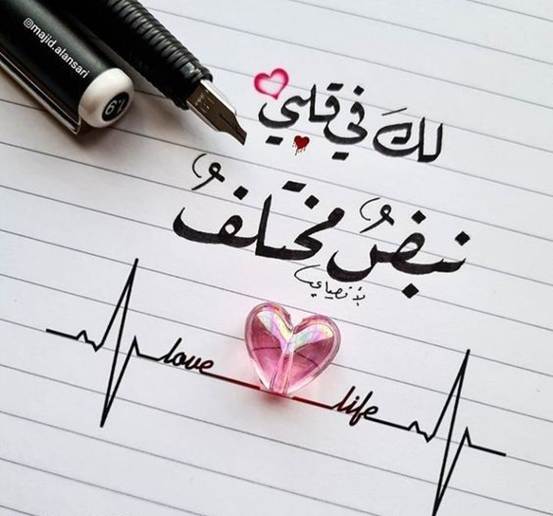 @majid.alansari
لكَ في قلبي
نبضٌ مختلفٌ
love
life